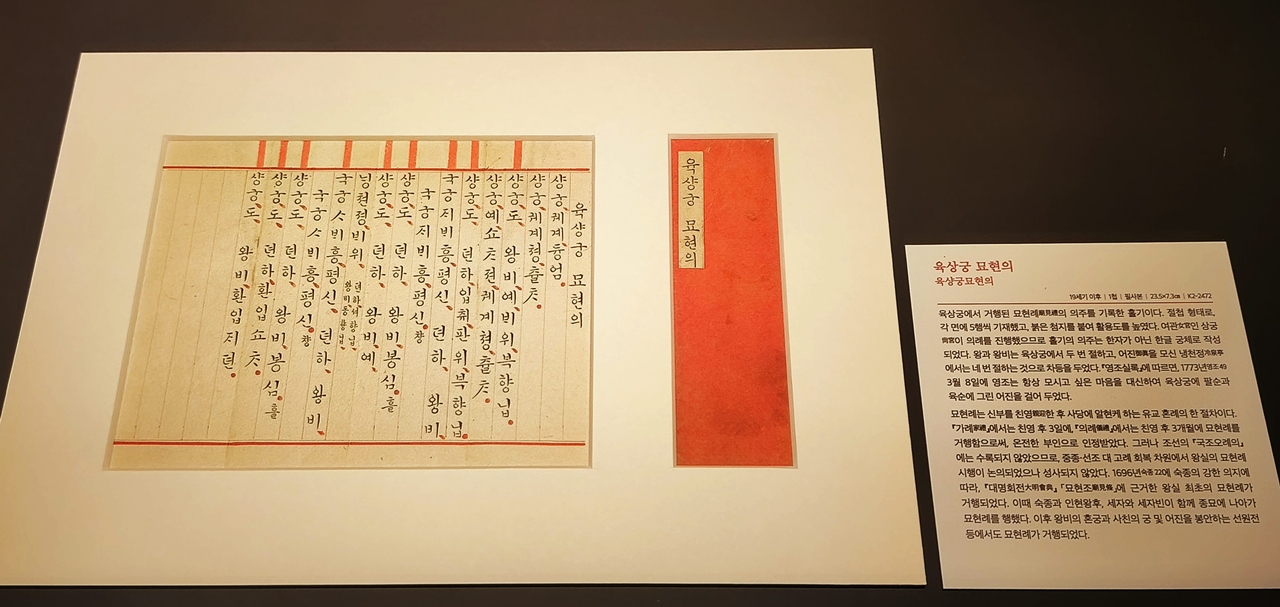 육샹궁 묘현의
샹궁궤계듕엄
샹궁궤계쳥츌ᄎ
샹궁도 왕비예비위북향닙
샹궁예쇼ᄎ젼궤계쳥츌ᄎ
샹궁도 뎐하입취판위북향닙
국궁ᄌᆡ비흥평신 뎐하 왕비
국궁ᄌᆡ비흥평신챵
샹궁도 뎐하 왕비봉심흘
샹궁도 뎐하 왕비예
닝쳔졍비위 뎐하셔향닙 왕비동향닙
국궁ᄉ비흥평신 뎐하 왕비
국궁ᄉ비흥평신챵
샹궁도 뎐하 왕비봉심흘
샹궁도 뎐하환입쇼ᄎ
샹궁도 왕비환입ᄌᆡ뎐
육샹궁 묘현의
육상궁 묘현의
육샹궁묘현의
19세기 이후 | 1첩 | 필사본 | 23.5×7.3㎝ | K2-2472
육상궁에서 거행된 묘현례廟見禮의 의주를 기록한 홀기이다. 절첩 형태로,
각 면에 5행씩 기재했고, 붉은 첨지를 붙여 활용도를 높였다. 여관女官인 상궁
尙宮이 의례를 진행했으므로 홀기의 의주는 한자가 아닌 한글 궁체로 작성
되었다. 왕과 왕비는 육상궁에서 두 번 절하고, 어진御眞을 모신 냉천정冷泉亭
에서는 네 번 절하는 것으로 차등을 두었다. 『영조실록』에 따르면, 1773년영조 49
3월 8일에 영조는 항상 모시고 싶은 마음을 대신하여 육상궁에 팔순과
육순에 그린 어진을 걸어 두었다.
묘현례는 신부를 친영親迎한 후 사당에 알현케 하는 유교 혼례의 한 절차이다.
『가례家禮』에서는 친영 후 3일에, 『의례儀禮』에서는 친영 후 3개월에 묘현례를
거행함으로써, 온전한 부인으로 인정받았다. 그러나 조선의 『국조오례의』
에는 수록되지 않았으므로, 중종·선조 대 고례 회복 차원에서 왕실의 묘현례
시행이 논의되었으나 성사되지 않았다. 1696년숙종 22에 숙종의 강한 의지에
따라, 『대명회전大明會典』 「묘현조廟見條」에 근거한 왕실 최초의 묘현례가
거행되었다. 이때 숙종과 인현왕후, 세자와 세자빈이 함께 종묘에 나아가
묘현례를 행했다. 이후 왕비의 혼궁과 사친의 궁 및 어진을 봉안하는 선원전
등에서도 묘현례가 거행되었다.